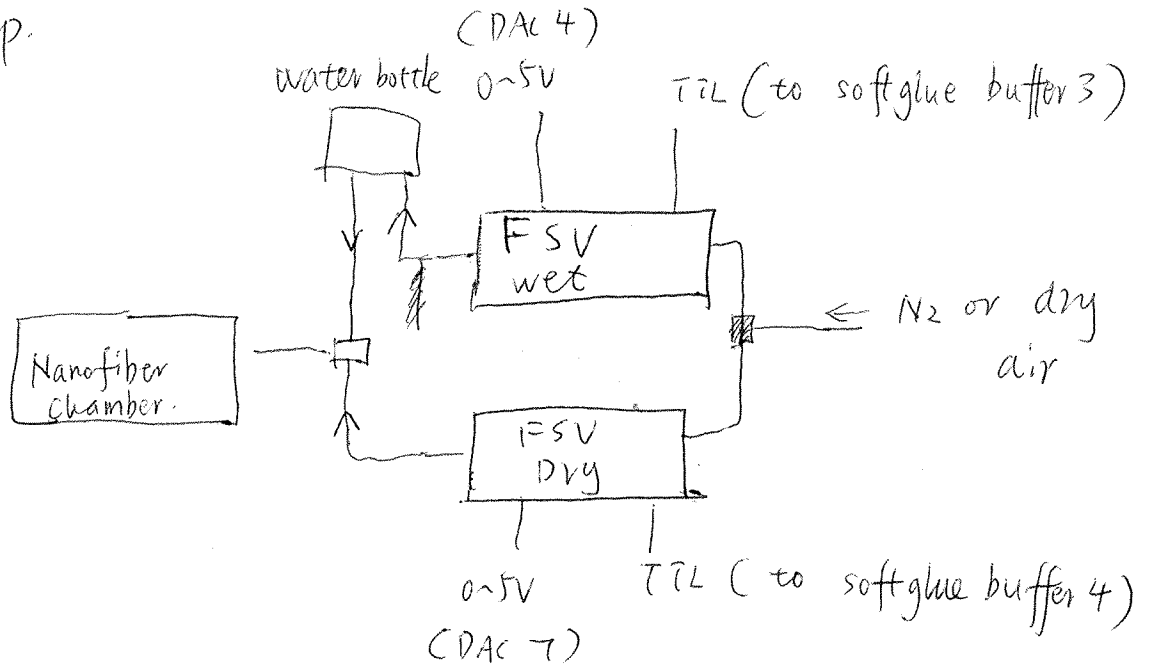 p.
(DAC 4)
water bottle 0~5V
TTL (to softglue buffer 3)
FSV
wet
N2 or dry
air
Nanofiber
chamber.
FSV
Dry
0~5V
TTL (to softglue buffer 4)
(DAC 7)